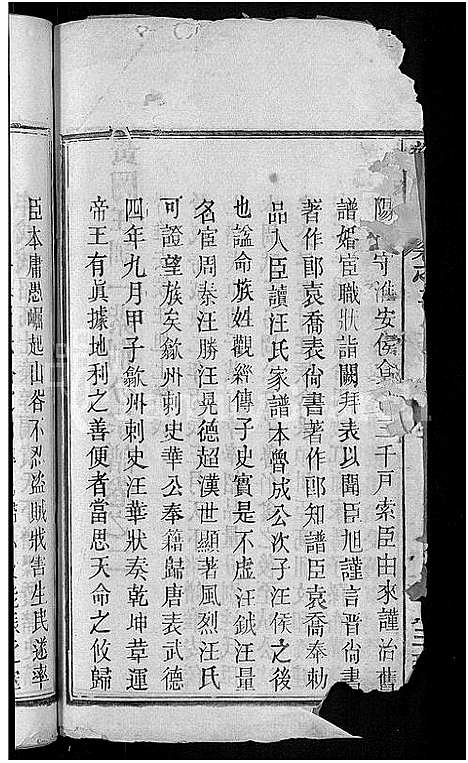 陽守淮安侯食三千戸索臣由來謹治舊
譜婚宦職狀詣闕拜表以聞臣旭謹言晉尙書
著作郎袁喬表尙書著作郎知譜臣袁喬奉勅
品人臣讀汪氏家譜本魯成公次子汪侯之後
也諡命族姓觀經傳子史實是不虛汪鉞汪量
名宦周秦汪勝汪晃德超漢世顯著風烈汪氏
可證望族矣歙州刺史華公奉籍歸唐表武德
四年九月甲子歙州刺史汪華狀奏乾坤葦運
帝王有眞據地利之善便者當思天命之攸歸
臣本庸愚崛起山谷不忍盜賊戕害生民遂率